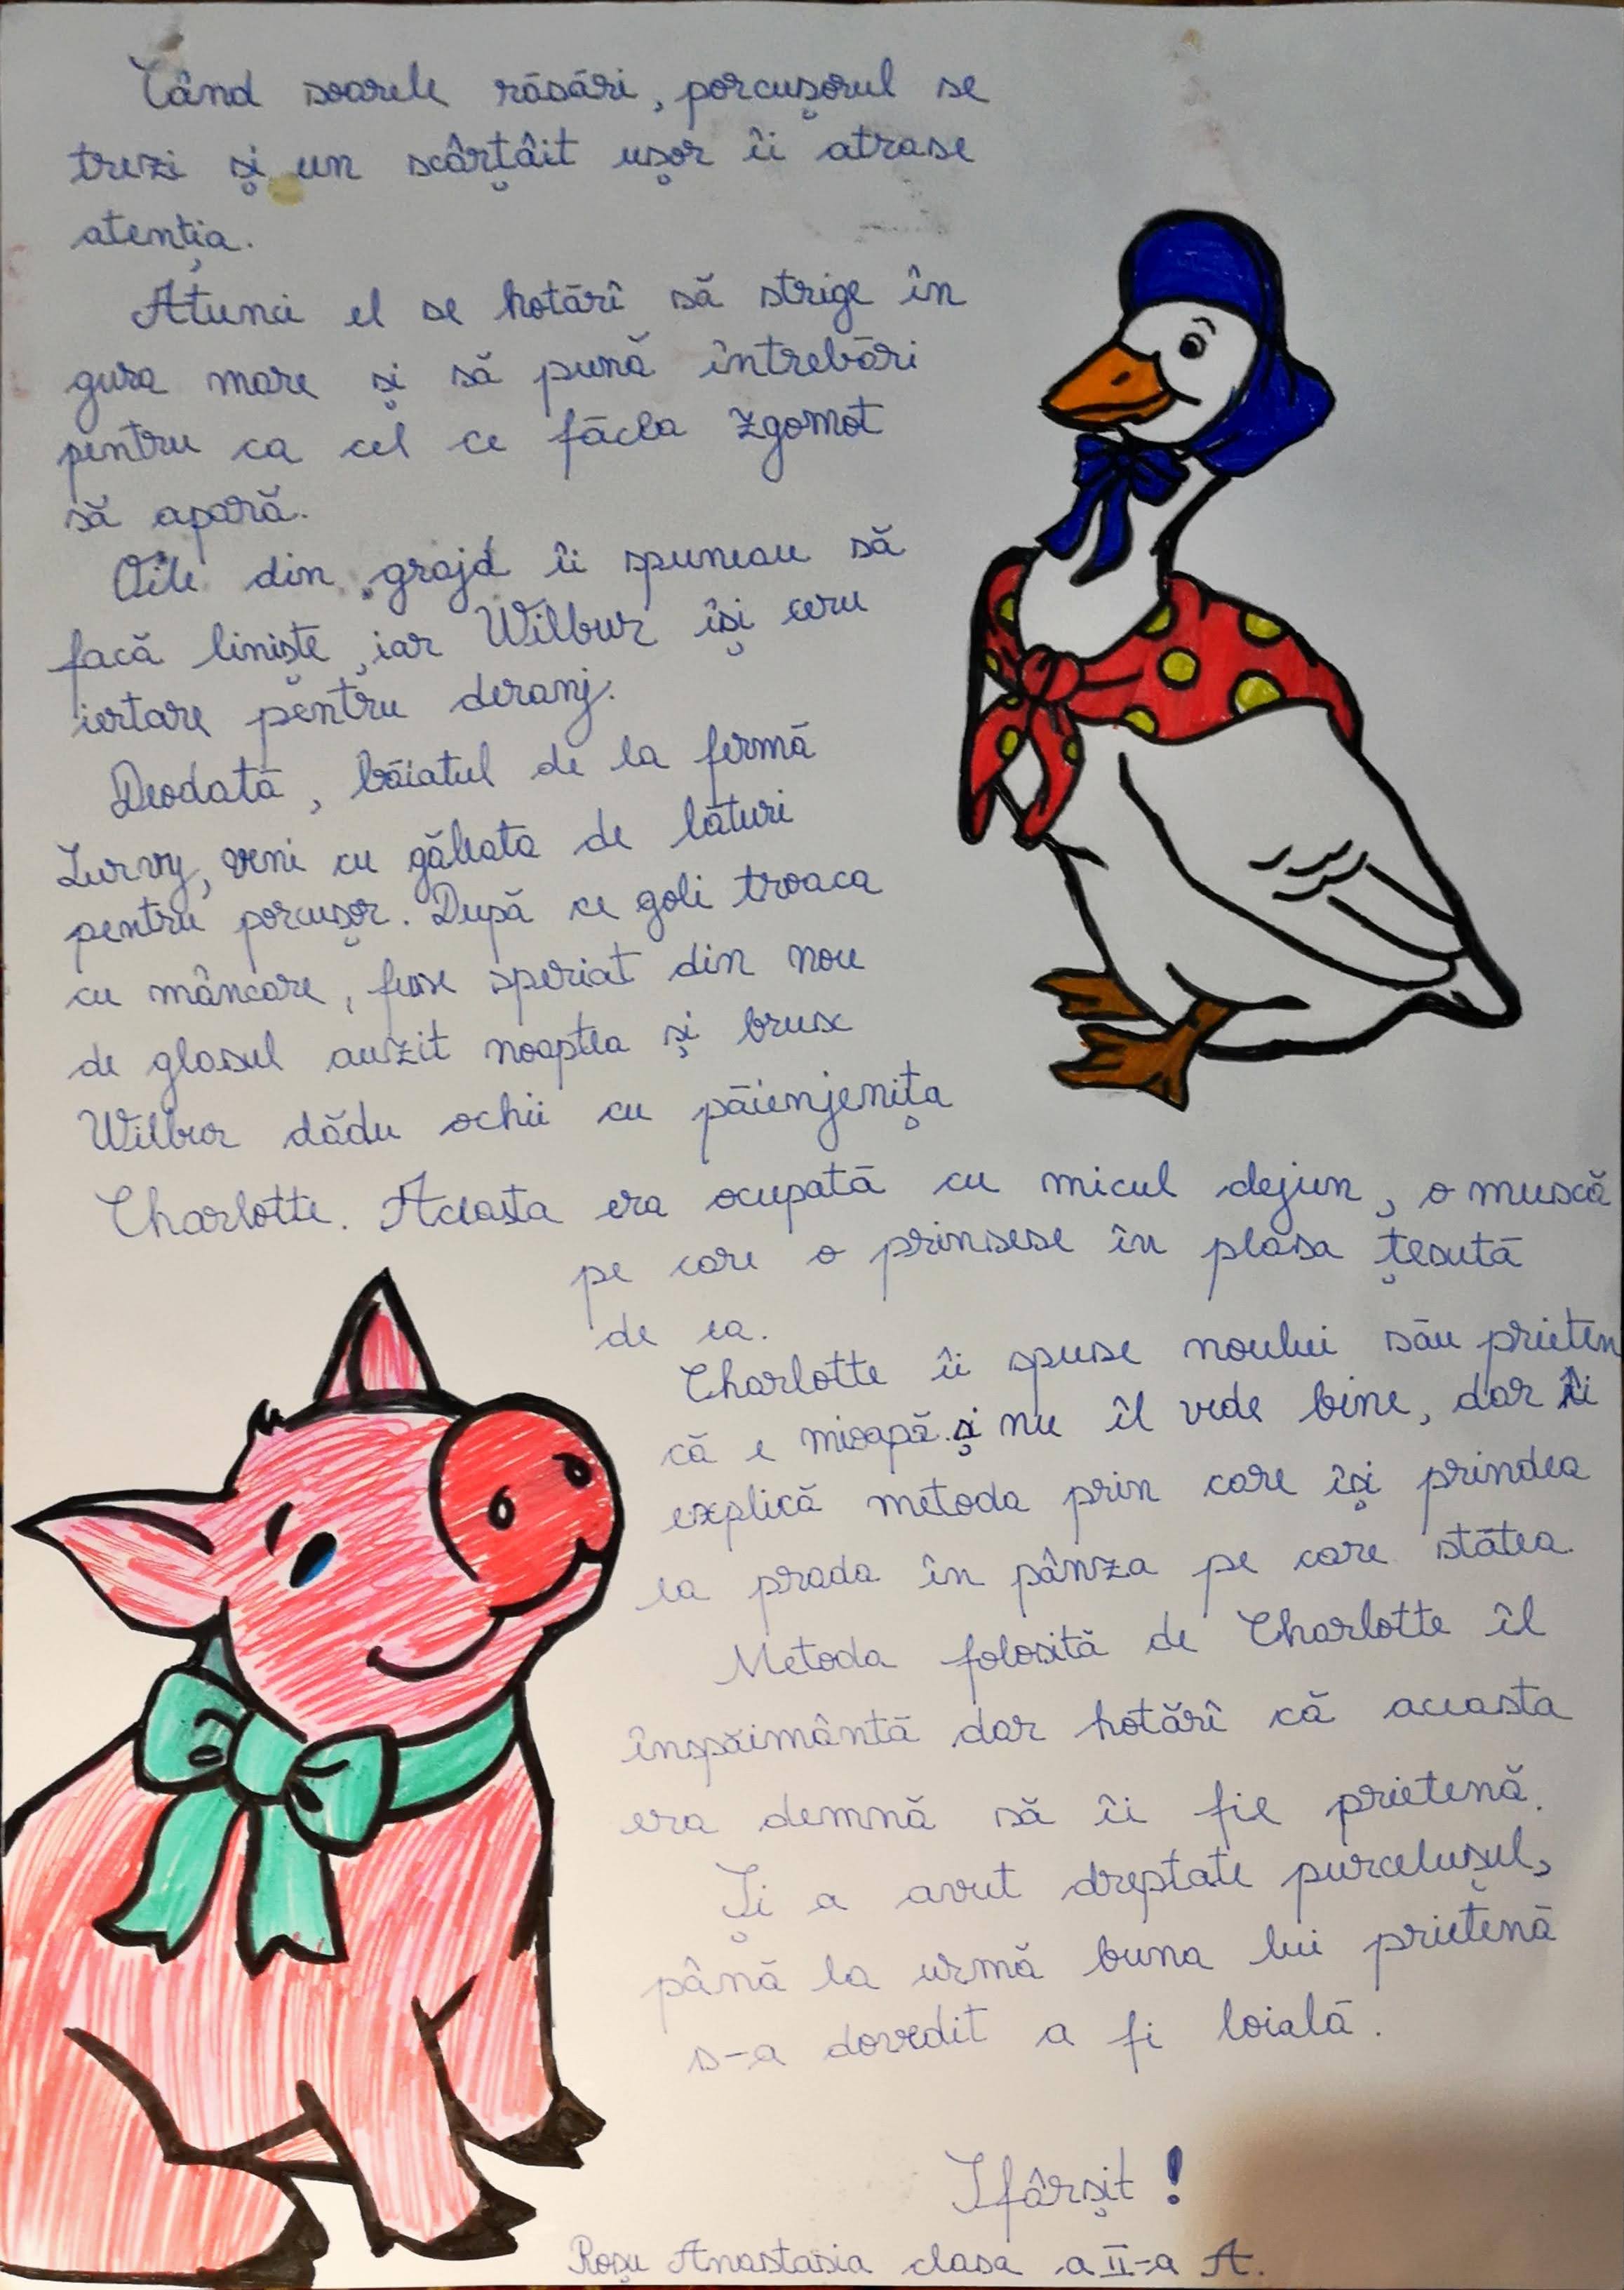 Când soarele răsări, porcușorul se
trezi și un scârțâit ușor îi atrase
atenția.
Atunci el se hotărî să strige în
gura mare și să pună întrebări
pentru ca cel ce făcea zgomot
să apară.
Oile din grajd îi spuneau să
facă liniște, iar Wilbur își ceru
iertare pentru deranj.
Deodată, băiatul de la fermă
Lurvy, veni cu găleata de lături
pentru porcușor. După ce goli troaca
cu mâncare, fuse speriat din nou
de glasul auzit noaptea și brusc
Wilbur dădu ochii cu păienjenița
Charlotte. Aceasta era ocupată cu micul dejun, o muscă
pe care o prinsese în plasa țesută
de ea.
Charlotte îi spuse noului său prieten
că e mioapă și nu îl vede bine, dar îi
explică metoda prin care își prindea
ea prada în pânza pe care stătea.
Metoda folosită de Charlotte îl
înspăimântă dar hotărî că aceasta
era demnă să îi fie prietenă.
Și a avut dreptate purcelușul,
până la urmă buna lui prietenă
s-a dovedit a fi loială.
Sfârșit!
Roșu Anastasia clasa a II-a A.